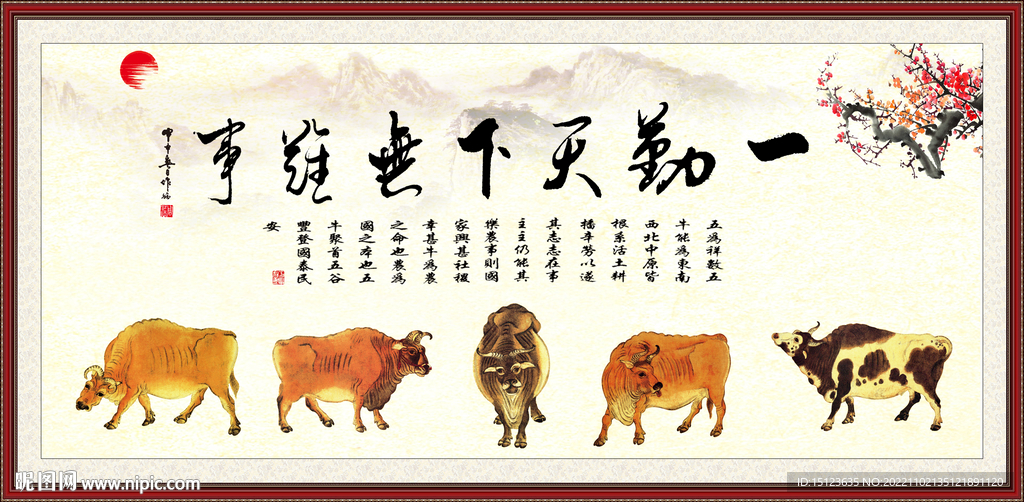 一勤天下無難事
五為祥數五
牛能為東南
西北中原皆
根系活土耕
播辛勞以遂
其志志在事
主主仍能其
樂農事則國
家興甚社稷
幸甚牛為農
之命也農為
國之本也五
牛聚首五谷
豐登國泰民
安
昵图网 www.nipic.com
ID:15123635 NO:20221102135121891120